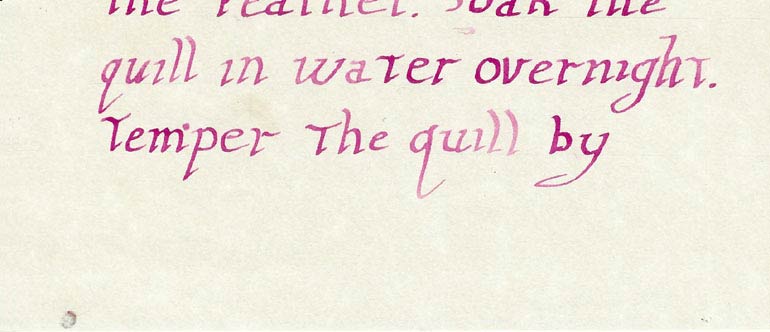 the feather. Soak the
quill in water overnight.
Temper the quill by